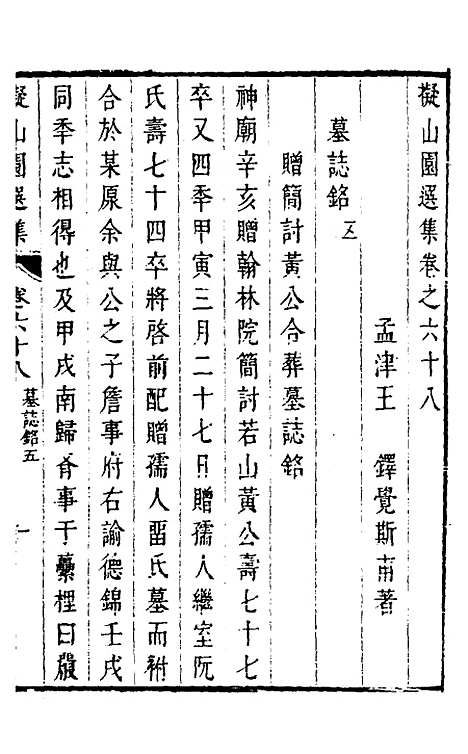 擬山園選集卷之六十八
孟津王　鐸覺斯甫著
墓誌銘　五
贈簡討黃公合葬墓誌銘
神廟辛亥贈翰林院簡討若山黃公壽七十七
卒又四秊甲寅三月二十七日贈孺人繼室阮
氏壽七十四卒將啓前配贈孺人畱氏墓而祔
合於某原余與公之子詹事府右諭德錦壬戌
同秊志相得也及甲戌南歸肴事于蘽梩曰
擬山園選集
卷六十八
墓誌銘五
一